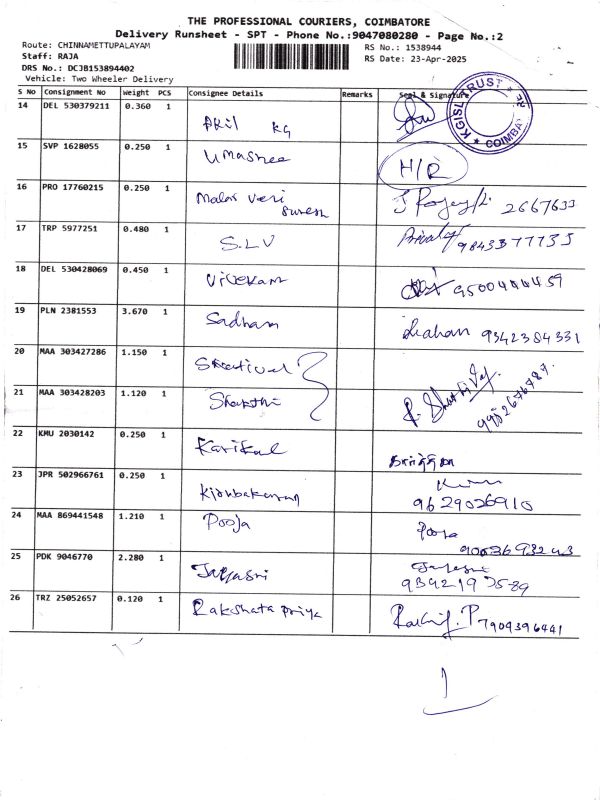 THE PROFESSIONAL COURIERS, COIMBATORE
Delivery Runsheet - SPT - Phone No.:9047080280 - Page No.:2
Route: CHINNAMETTUPALAYAM
RS No.: 1538944
Staff: RAJA
RS Date: 23-Apr-2025
DRS No.: DCJB153894402
Vehicle: Two Wheeler Delivery
S No Consignment No Weight PCS Consignee Details Remarks Seal & Signature
KGISL TRUST COIMBA
14 DEL 530379211 0.360 1
Akil KG
15 SVP 1628055 0.250 1
Umashree H/R
16 PRO 17760215 0.250 1
Malar Veri
Suresh 2667633
17 TRP 5977251 0.480 1
S.L.V 9843377735
18 DEL 530428069 0.450 1
Vivekam 9500444459
19 PLN 2381553 3.670 1
Sadham 9342384331
20 MAA 303427286 1.150 1
21 MAA 303428203 1.120 1
Shakthi 9952676787.
22 KMU 2030142 0.250 1
Karikal
23 JPR 502966761 0.250 1
9629026910
24 MAA 869441548 1.210 1
Pooja Pooja
25 PDK 9046770 2.280 1
Jayasri Jayasri
26 TRZ 25052657 0.120 1
Rakshata priya 7904396441